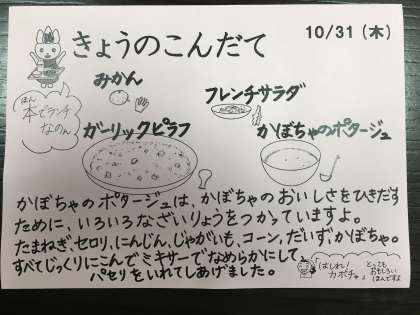 10/31 (木)
きょうのこんだて
みかん
フレンチサラダ
ほん
本でランチ
なのん
ガーリックピラフ
かぼちゃのポタージュ
かぼちゃのポタージュは、かぼちゃのおいしさをひきだす
ために、いろいろなざいりょうをつかっていますよ。
たまねぎ、セロリ、にんじん、じゃがいも、コーン、だいず、かぼちゃ。
すべてじっくりにこんでミキサーでなめらかにして、
パセリをいれてしあげました。
「はしれ!
カボチャ」
とっても
おもしろい
ほんですよ